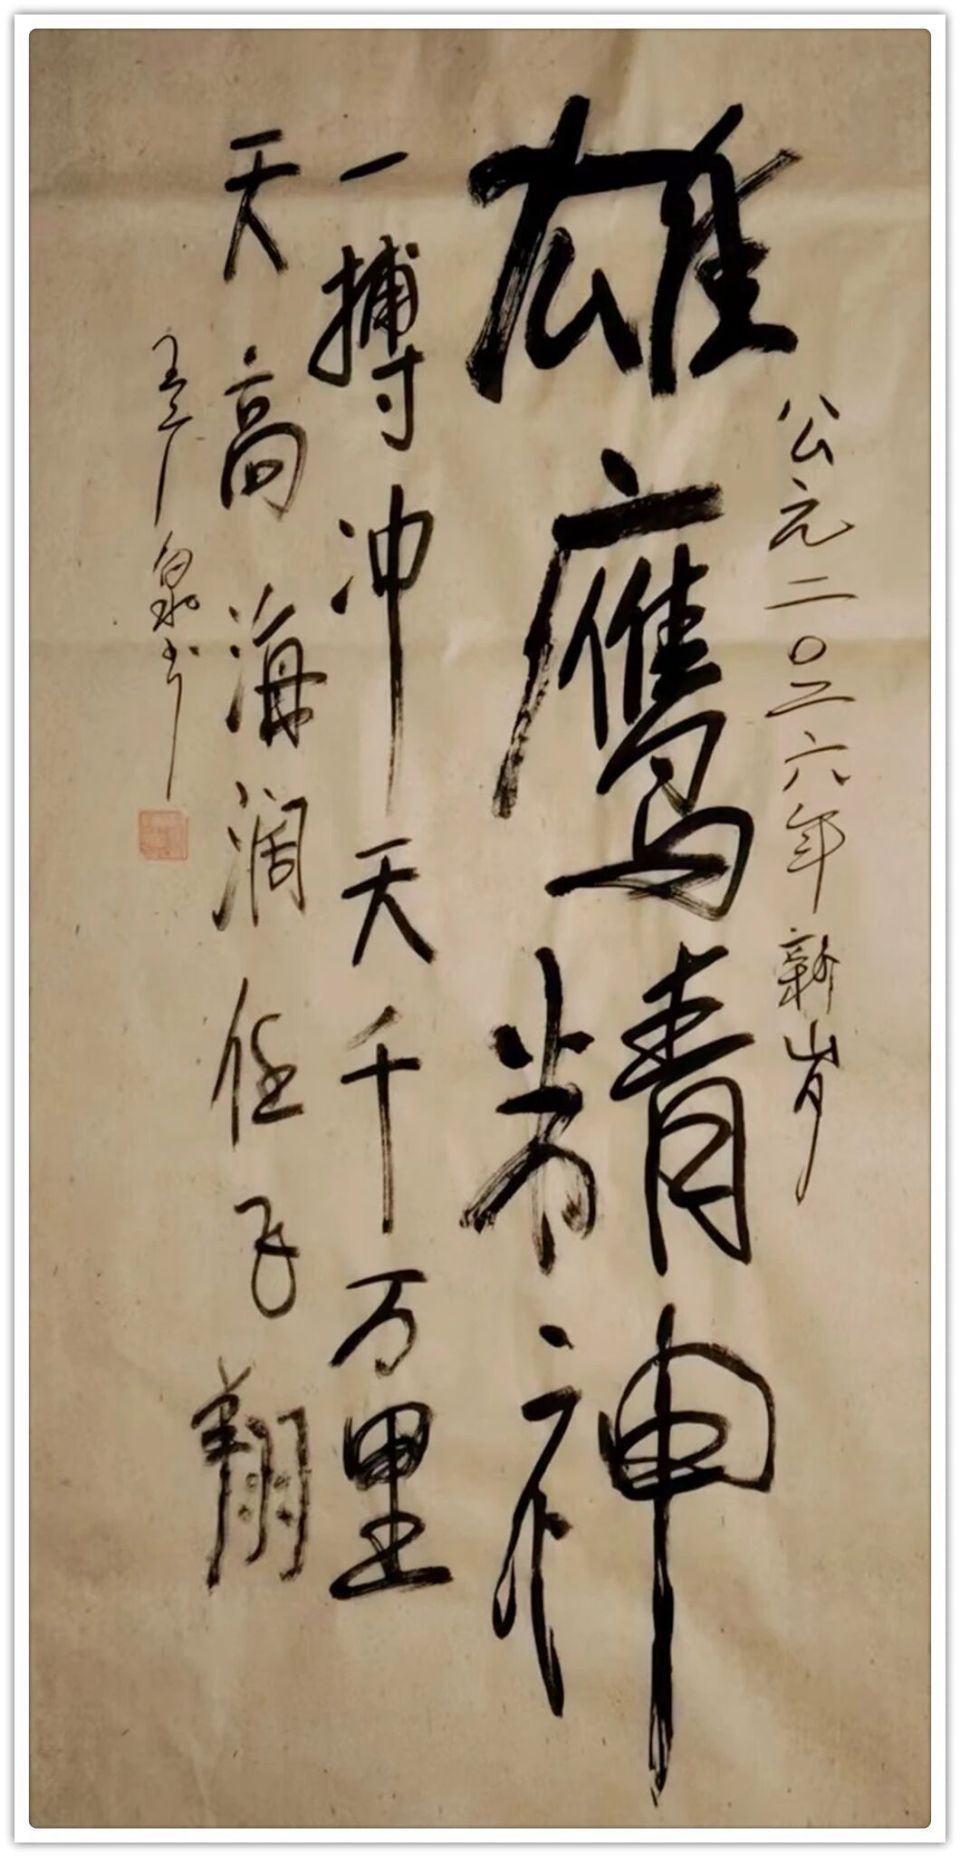 公元二〇二六年新岁
雄鹰精神
一搏冲天千万里
天高海阔任飞翔
王 泉书